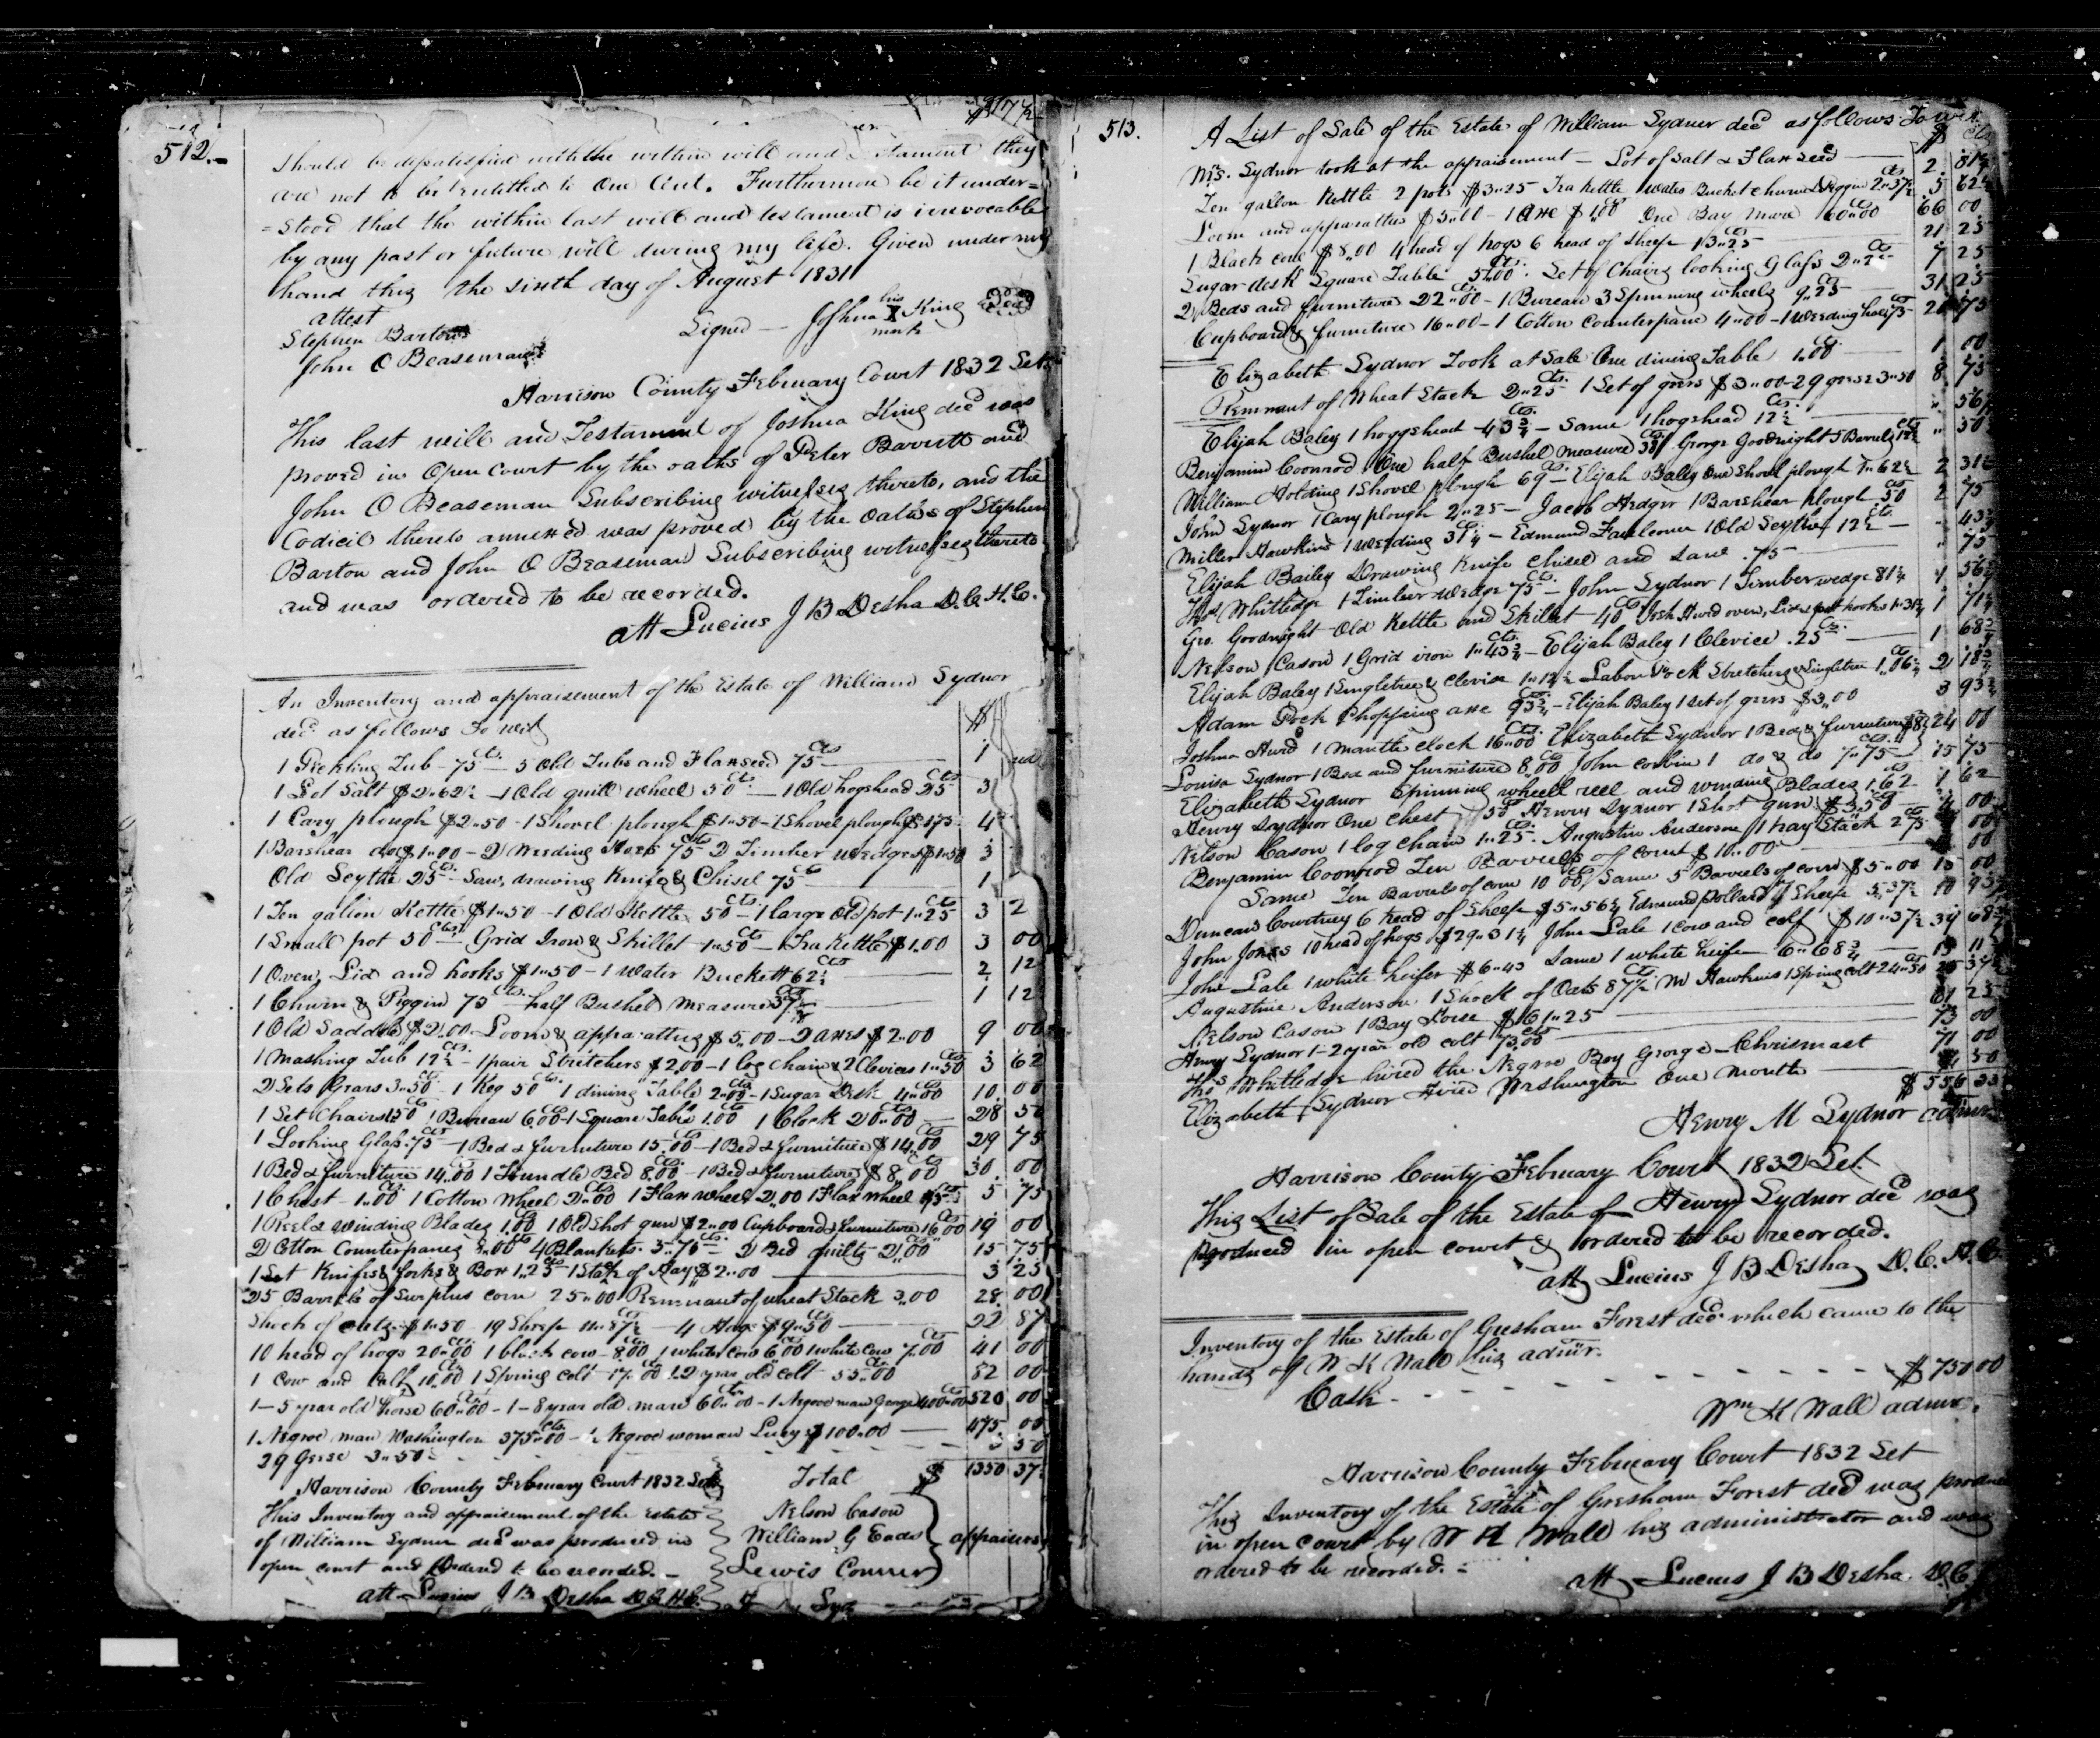 512.
should be disatisfied with the within will and testament they
are not to be entitled to One Cent. Furthermore be it under=
=stood that the within last will and testament is irrevocable
by any past or future will during my life. Given under my
hand this the sixth day of August 1831
attest
Stephen Barton
John O Beaseman
Signed — Joshua his X mark King Seal
Harrison County February Court 1832 Set.
This last will and Testament of Joshua King decd was
proved in Open Court by the oaths of Peter Barrett and
John O Beaseman Subscribing witnesses thereto, and the
Codicil thereto annexed was proved by the Oaths of Stephen
Barton and John O Beaseman Subscribing witnesses thereto
and was ordered to be recorded.
att Lucius J B Desha D.C.H.C.
An Inventory and appraisement of the Estate of William Sydnor
decd as follows To wit $
1 Pickling Tub - 75 cts - 3 Old Tubs and Flaxseed 75 cts 1
1 Lot Salt $2"62½ - 1 Old quill wheel 50 cts - 1 Old hogshead 25 cts 3
1 Cary plough $2"50 - 1 Shovel plough $1"50 - 1 Shovel plough 4
1 Barshear do $1"00 - 2 Weeding Hoes 75 cts 2 Timber wedges $1"50 3
Old Scythe 25 cts - Saw, drawing Knife & Chisel 75 cts 1
1 Ten gallon Kettle $1"50 - 1 Old Kettle 50 cts - 1 large Old pot 1"25 cts 3 2
1 Small pot 50 cts - Grid Iron & Skillet 1"50 cts - Tea Kettle $1.00 3 00
1 Oven, Lid and hooks $1"50 - 1 Water Buckett 62½ cts 2 12
1 Churn & Piggin 75 cts half Bushel measure 37½ cts 1 12
1 Old Saddle $2"00 - Loom & apparattus $5"00 - 2 axes $2"00 9 00
1 Mashing Tub 12½ - 1 pair Stretchers $2.00 - 1 log chain & 2 Clevices 1"50 cts 3 62
2 Sets Gears 3"50 cts 1 Keg 50 cts 1 dining Table 2"00 cts - 1 Sugar Desk 4"00 cts 10 00
1 Set Chairs 1"50 cts 1 Bureau 6"00 cts - 1 Square Table 1.00 cts 1 Clock 20"00 cts 28 50
1 Looking Glass 75 cts - 1 Bed & furniture 15"00 cts - 1 Bed & furniture $14"00 cts 29 75
1 Bed & furniture 14"00 1 Trundle Bed 8.00 cts - 1 Bed & furniture $8"00 cts 30 00
1 Chest 1"00 cts 1 Cotton Wheel 2"00 cts 1 Flax wheel 2"00 1 Flax wheel 5 75
1 Reel & winding Blades 1.00 cts 1 Old Shot gun $2"00 Cupboard & furniture 16"00 cts 19 00
2 Cotton Counterpanes 8"00 cts 4 Blankets 3"75 cts 2 Bed quilts 2"00 cts 15 75
1 Set Knifes & forks & Box 1.25 cts 1 Stack of Hay $2"00 3 25
25 Barrels of Surplus corn 25"00 Remnant of wheat Stack 3"00 28 00
Shock of oats $1"50 19 Sheep 11"87½ cts - 4 Hogs $9"50 cts 22 87
10 head of hogs 20"00 cts 1 black cow 8"00 cts 1 white cow 6"00 cts 1 white Cow 7"00 cts 41 00
1 Cow and calf 10"00 cts 1 Spring colt 17"00 cts 1-2 year old colt 55"00 cts 82 00
1-5 year old horse 60"00 cts - 1-8 year old mare 60"00 cts - 1 Negroe man George 400"00 cts 520 00
1 Negroe man Washington 375"00 cts - 1 Negroe woman Lucy $100"00 475 00
29 Geese 3"50 3 50
Total $ 1350 37½
Harrison County February Court 1832 Set
This Inventory and appraisement of the Estate
of William Sydnor decd was produced in
open court and Ordered to be recorded.
att Lucius J B Desha D.C.H.C.
Nelson Cason
William G Eads
Lewis Conner
appraisers
513.
A List of Sale of the Estate of William Sydner decd as follows To wit
$ Cts
Mrs. Sydnor took at the appraisement - Lot of Salt & Flaxseed 2. 81½
Ten gallon Kettle 2 pots $3"25 Tea Kettle Water Bucket churn & Piggin 2"37½ cts 5 62½
Loom and apparattus $5"00 - 1 Axe $1"00 One Bay Mare 60"00 cts 66 00
1 Black cow $8"00 4 head of hogs 6 head of Sheep 13"25 cts 21 25
Sugar desk Square Table 5"00 cts. Set of Chairs looking Glass 2"25 cts 7 25
2 Beds and furniture 22"00 cts - 1 Bureau 3 Spinning wheels 9"25 cts 31 25
Cupboard & furniture 16"00 - 1 Cotton Counterpane 4"00 - 1 Weeding hoe 75 cts 20 75
Elizabeth Sydnor Took at Sale One dining Table 1.00 cts 1 00
Remnant of Wheat Stack 2"25 cts. 1 Set of geers $3"00 - 29 geese 3"50 8 75
Elijah Baley 1 hoggshead 43¾ cts - Same 1 hogshead 12½ cts " 56¼
Benjamin Coonrod One half Bushel Measure George Goodnight 5 Barrels 12½ cts " 50
William Holding 1 Shovel plough 69 cts - Elijah Baley One Shovel plough 1"62½ 2 31½
John Sydnor 1 Cary plough 2"25 - Jacob Hedger 1 Barshear plough 50 cts 2 75
Miller Hawkins 1 Weeding 31¼ cts - Edmund Faulconer 1 Old Scythe 12½ cts " 43¾
Elijah Bailey Drawing Knife Chisel and Saw .75 " 75
Thos Whitledge 1 Timber wedge 75 cts - John Sydnor 1 Timber wedge 81¼ 1 56¼
Geo. Goodnight Old Kettle and Skillet 40 cts Josh Hurd oven, Lid & pot hooks 1"31¼ 1 71¼
Nelson Cason 1 Grid iron 1"43¾ cts - Elijah Baley 1 Clevice .25 cts 1 68¾
Elijah Baley 1 Singletree & Clevice 1"12½ Stretchers & Singletree 1"06¼ cts 2 18¾
Adam Chopping axe 93¾ cts - Elijah Baley 1 Set of geers $3"00 3 93¾
Joshua Hurd 1 Mantle clock 16"00 cts Elizabeth Sydnor 1 Bed & furniture $8 24 00
Louisa Sydnor 1 Bed and furniture 8.00 cts John corbin 1 do & do 7"75 cts 15 75
Elizabeth Sydnor Spinning wheell reel and winding Blades 1.62 cts 1 62
Henry Sydnor One Chest 50 cts Henry Sydnor 1 Shot gun $3"50 4 00
Nelson Cason 1 log chain 1"25 cts. Augustin Anderson 1 hay Stack 2"75 cts 4 00
Benjamin Coonrod Ten Barrels of corn $10"00 10 00
Same Ten Barrels of corn 10"00 cts Same 5 Barrels of corn $5"00 15 00
Duncan Courtney 6 head of Sheep $5"56¼ Edmund Pollard 7 Sheep 5"37½ 10 93¾
John Jones 10 head of hogs $29"31¼ John Lale 1 cow and calf $10"37½ 39 68¾
John Lale 1 white heifer $6"43 Same 1 white heifer 6"68¾ 13 11
Augustine Anderson 1 Shock of Oats 87½ cts M Hawkins 1 Spring colt 24"50 cts 25 37½
Nelson Cason 1 Bay Horse $61"25 61 25
Henry Sydnor 1-2 year old colt 73"00 cts 73 00
Thos Whitledge hired the Negroe Boy George - Chrismast 71 00
Elizabeth Sydnor Hired Washington One month 4 50
$ 556 33
Henry M Sydnor admr
Harrison County February Court 1832 Set.
This List of Sale of the Estate of Henry Sydnor decd was
produced in open court & ordered to be recorded.
att Lucius J B Desha D.C.H.C.
Inventory of the Estate of Gresham Forest decd which came to the
hands of W K Wall his admr.
Cash - - - - - - - - $750 00
Wm K Wall admr.
Harrison County February Court 1832 Set
This Inventory of the Estate of Gresham Forest decd was produce
in open court by W K Wall his administrator and was
ordered to be recorded.
att Lucius J B Desha D.C.